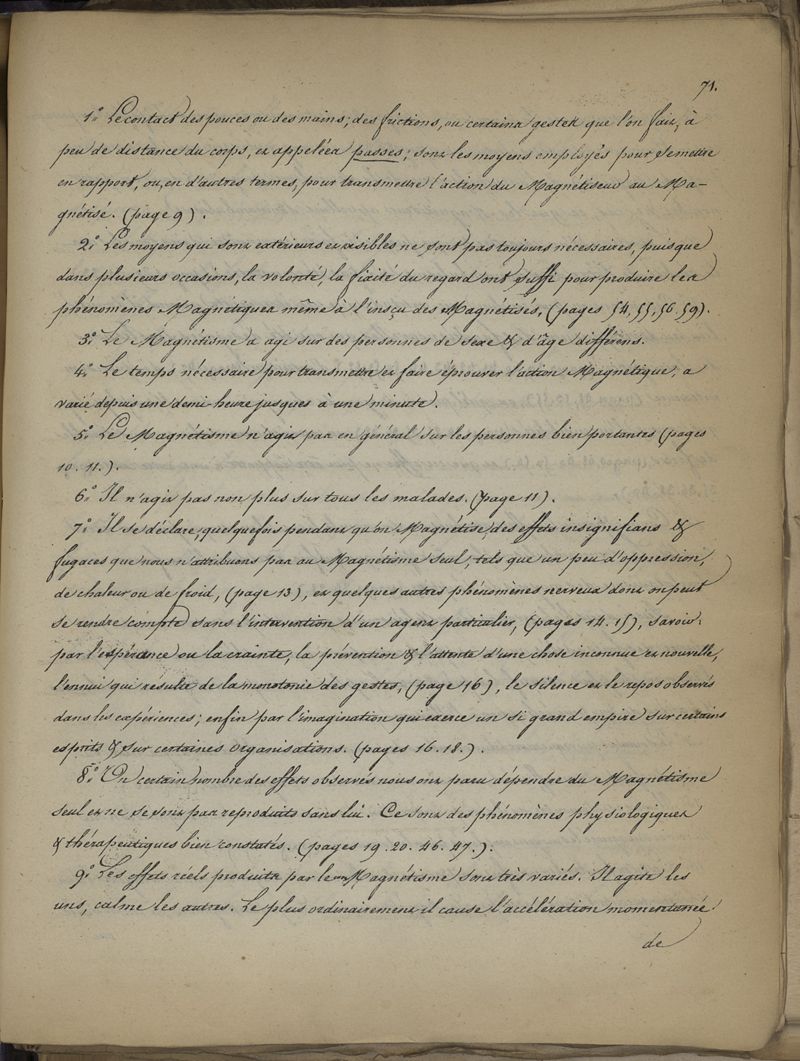 71.
1.° Le contact des pouces ou des mains; des frictions, ou certains gestes que l'on fait, à
peu de distance du corps, et appelées passes; sont les moyens employés pour se mettre
en rapport, ou, en d'autres termes, pour transmettre l'action du Magnétiseur au Ma-
gnétisé. (page 9).
2.° Les moyens qui sont extérieurs et visibles ne sont pas toujours nécessaires, puisque
dans plusieurs occasions, la volonté, la fixité du regard ont suffi pour produire les
phénomènes Magnétiques même à l'insçu des Magnétisés, (pages 54, 55, 56. 59).
3.° Le Magnétisme a agi sur des personnes de sexe & d'âge différens.
4.° Le temps nécessaire pour transmettre et faire éprouver l'action Magnétique, a
varié depuis une demi-heure jusques à une minute.
5.° Le Magnétisme n'agit pas en général sur les personnes bien portantes (pages
10. 11.).
6.° Il n'agit pas non plus sur tous les malades. (page 11).
7.° Il se déclare, quelquefois pendant qu'on Magnétise, des effets insignifians &
fugaces que nous n'attribuons pas au Magnétisme seul; tels que un peu d'oppression,
de chaleur ou de froid, (page 13), et quelques autres phénomènes nerveux dont on peut
se rendre compte sans l'intervention d'un agent particulier, (pages 14. 15), savoir:
par l'espérance ou la crainte, la prévention & l'attente d'une chose inconnue et nouvelle,
l'ennui qui résulte de la monotonie des gestes, (page 16), le silence et le repos observés
dans les expériences; enfin par l'imagination qui exerce un si grand empire sur certains
esprits & sur certaines organisations. (pages 16. 18.).
8.° Un certain nombre des effets observés nous ont paru dépendre du Magnétisme
seul et ne se sont pas reproduits sans lui. Ce sont des phénomènes physiologiques
& thérapeutiques bien constatés. (pages 19. 20. 46. 47.).
9.° Les effets réels produits par le Magnétisme sont très variés. Il agite les
uns, calme les autres. Le plus ordinairement il cause l'accélération momentanée
de